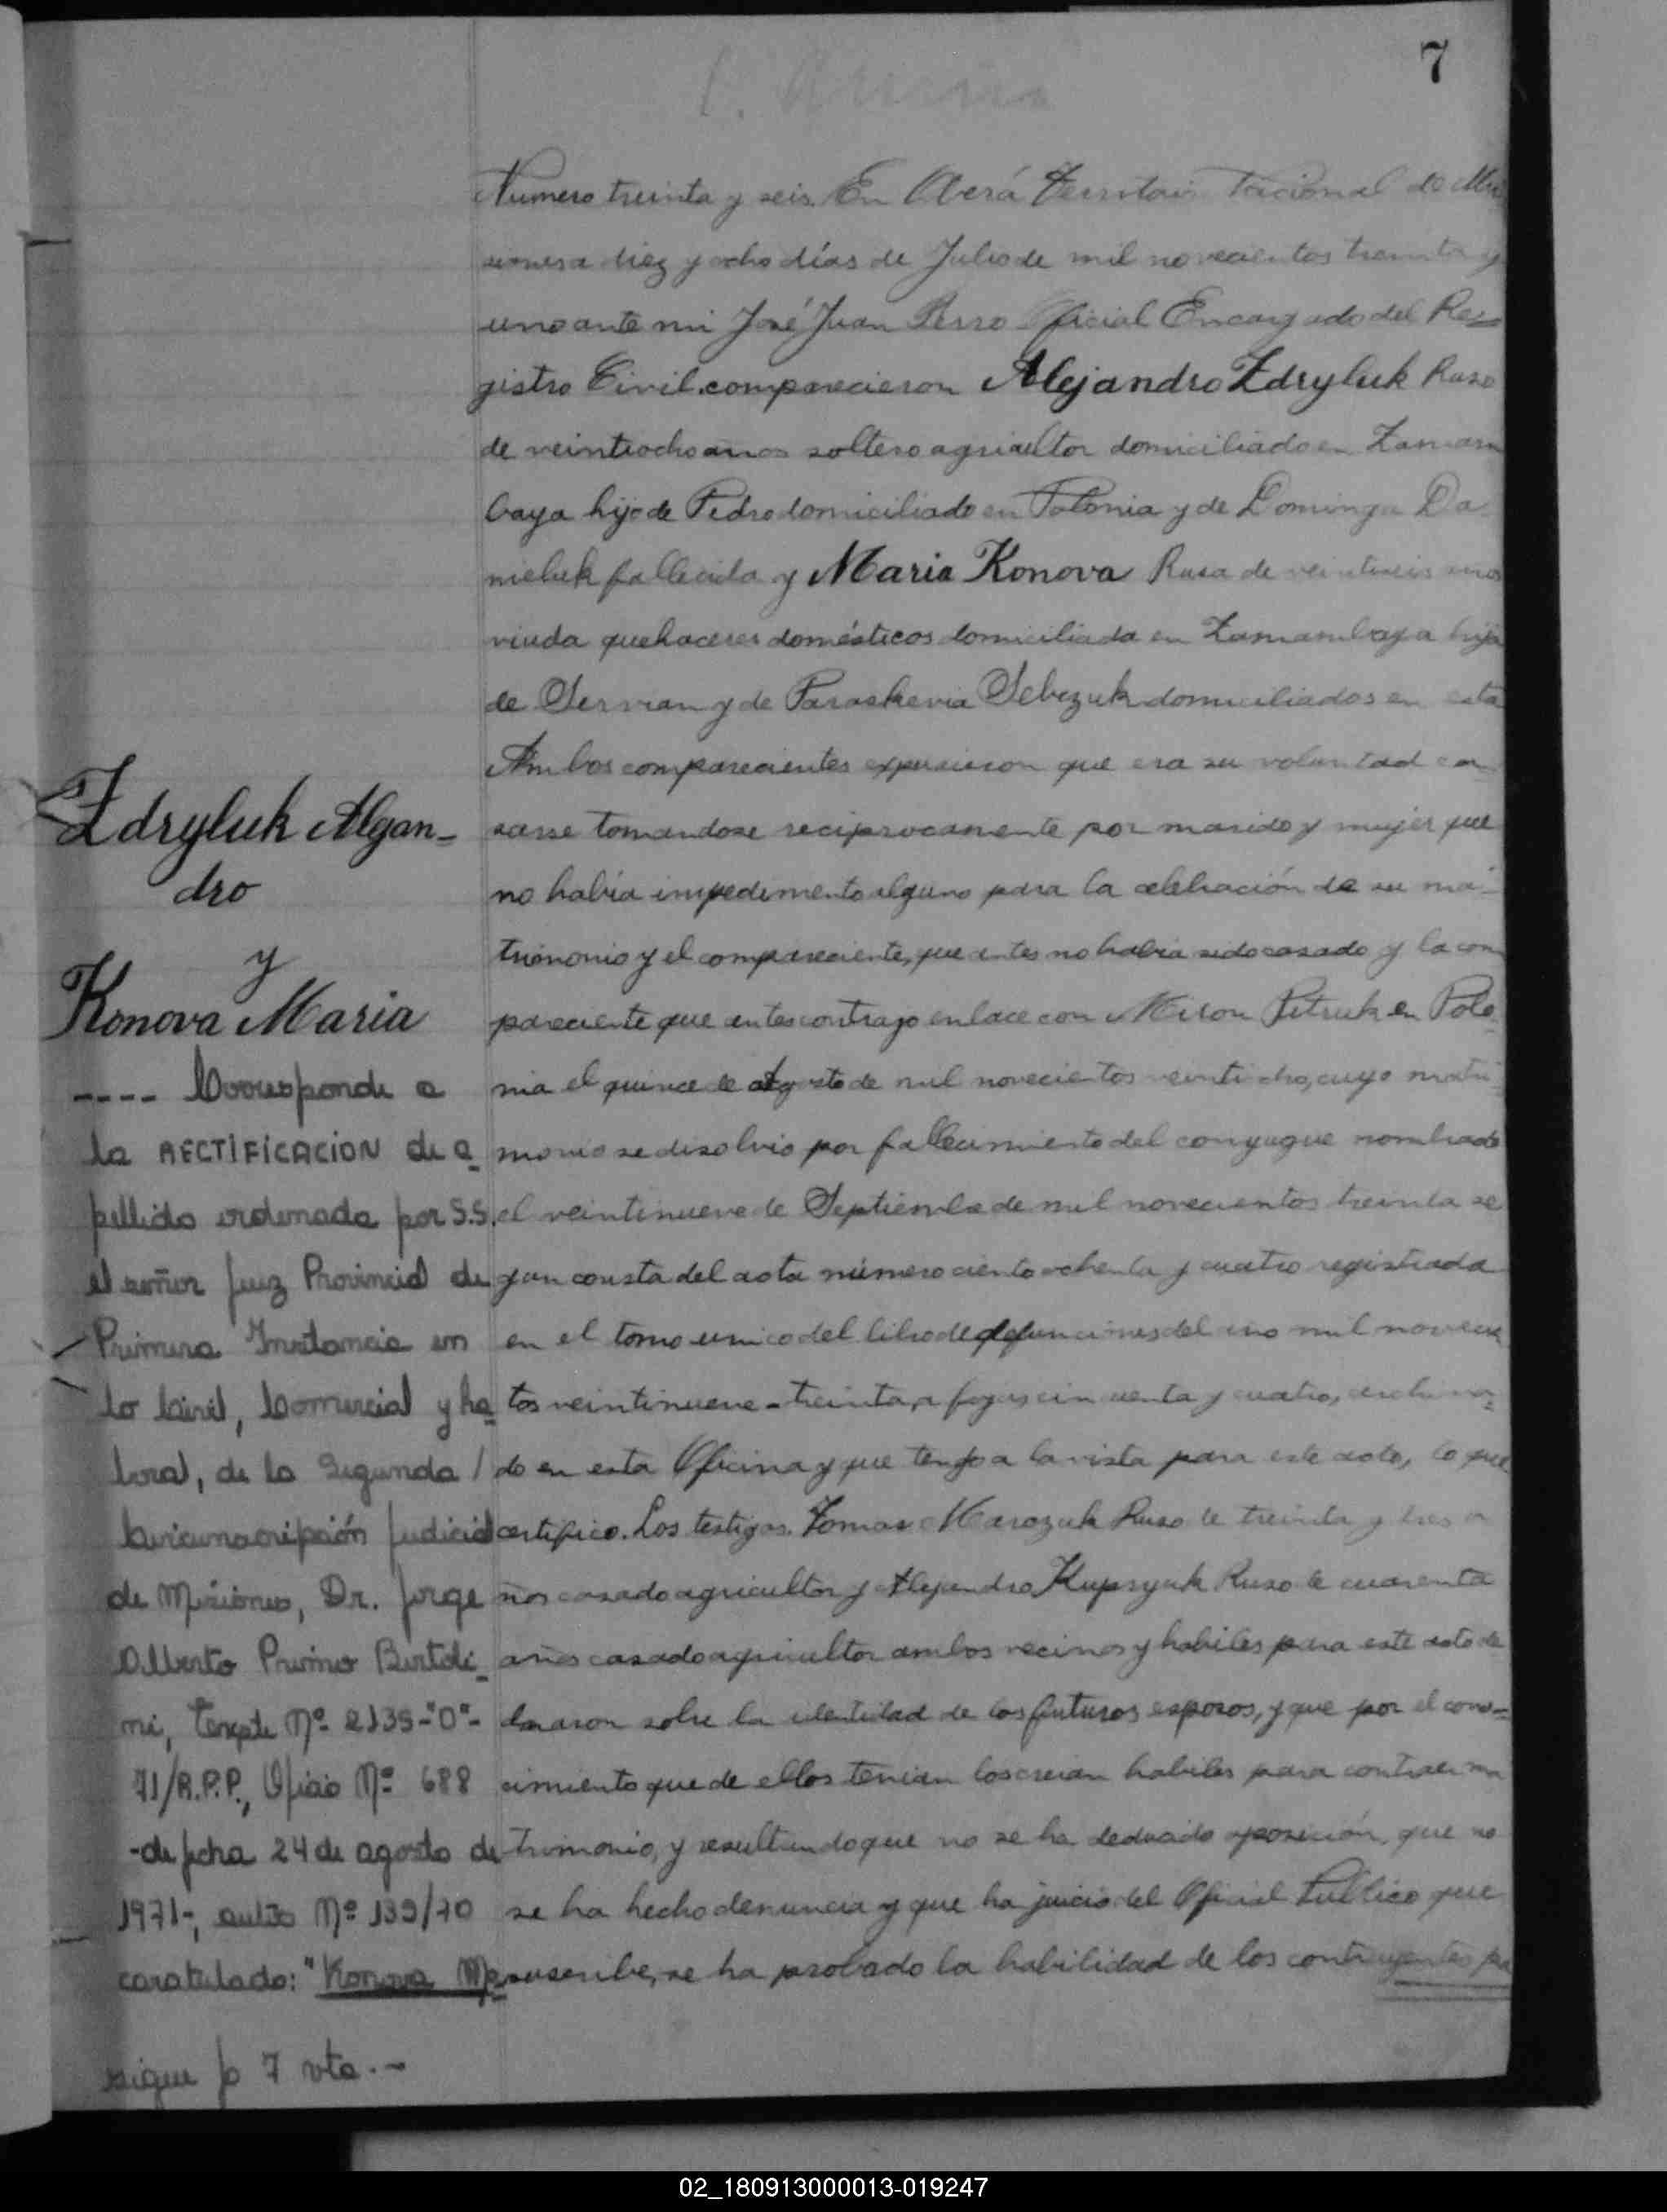 7
Numero treinta y seis. En Oberá Territorio Nacional de Mi
siones a diez y ocho días de Julio de mil novecientos treinta y
uno ante mi José Juan Berro Oficial Encargado del Re=
gistro Civil. comparecieron Alejandro Zdryluk Ruso
de veintiocho años soltero agricultor domiciliado en Zamam
baya hijo de Pedro domiciliado en Polonia y de Dominga Da
nieluk fallecida y Maria Konova Rusa de veintiseis años
viuda quehaceres domésticos domiciliada en Zamambaya hija
de Servian y de Paraskevia Sebczuk domiciliados en esta
Ambos comparecientes expusieron que era su voluntad ca
sarse tomandose reciprocamente por marido y mujer que
no había impedimento alguno para la celebración de su ma-
trimonio y el compareciente, que antes no habia sido casado y la com
pareciente que antes contrajo enlace con Miron Petruk en Polo
nia el quince de Agosto de mil novecientos veintiocho, cuyo matri
monio se disolvio por fallecimiento del conyugue nombrado
el veintinueve de Septiembre de mil novecientos treinta se
gun consta del acta número ciento ochenta y cuatro registrada
en el tomo unico del libro de defunciones del año mil novecien
tos veintinueve - treinta, a fojas cincuenta y cuatro, archiva=
do en esta Oficina y que tengo a la vista para este acto, lo que
certifico. Los testigos. Tomas Marozuk Ruso de treinta y tres a
ños casado agricultor y Alejandro Kupryuk Ruso de cuarenta
años casado agricultor ambos vecinos y habiles para este acto de
clararon sobre la identidad de los futuros esposos, y que por el cono=
cimiento que de ellos tenian los creian habiles para contraer ma
trimonio, y resultando que no se ha deducido oposición, que no
se ha hecho denuncia y que ha juicio del Oficial Publico que
suscribe, se ha probado la habilidad de los contrayentes pa
Zdryluk Algan-
dro
y
Konova Maria
---- Corresponde a
la RECTIFICACION de a
pellido ordenada por S.S.
el señor Juez Provincial de
Primera Instancia en
lo Civil, Comercial y La
boral, de la Segunda /
Circunscripción Judicial
de Misiones, Dr. Jorge
Alberto Primo Bertoli
ni, Nº 2135-"O"-
71/R.P.P., Oficio Nº 688
-de fecha 24 de agosto de
1971-, autos Nº 139/70
caratulado: "Konova Ma
sigue fo 7 vta.-
02_180913000013-019247